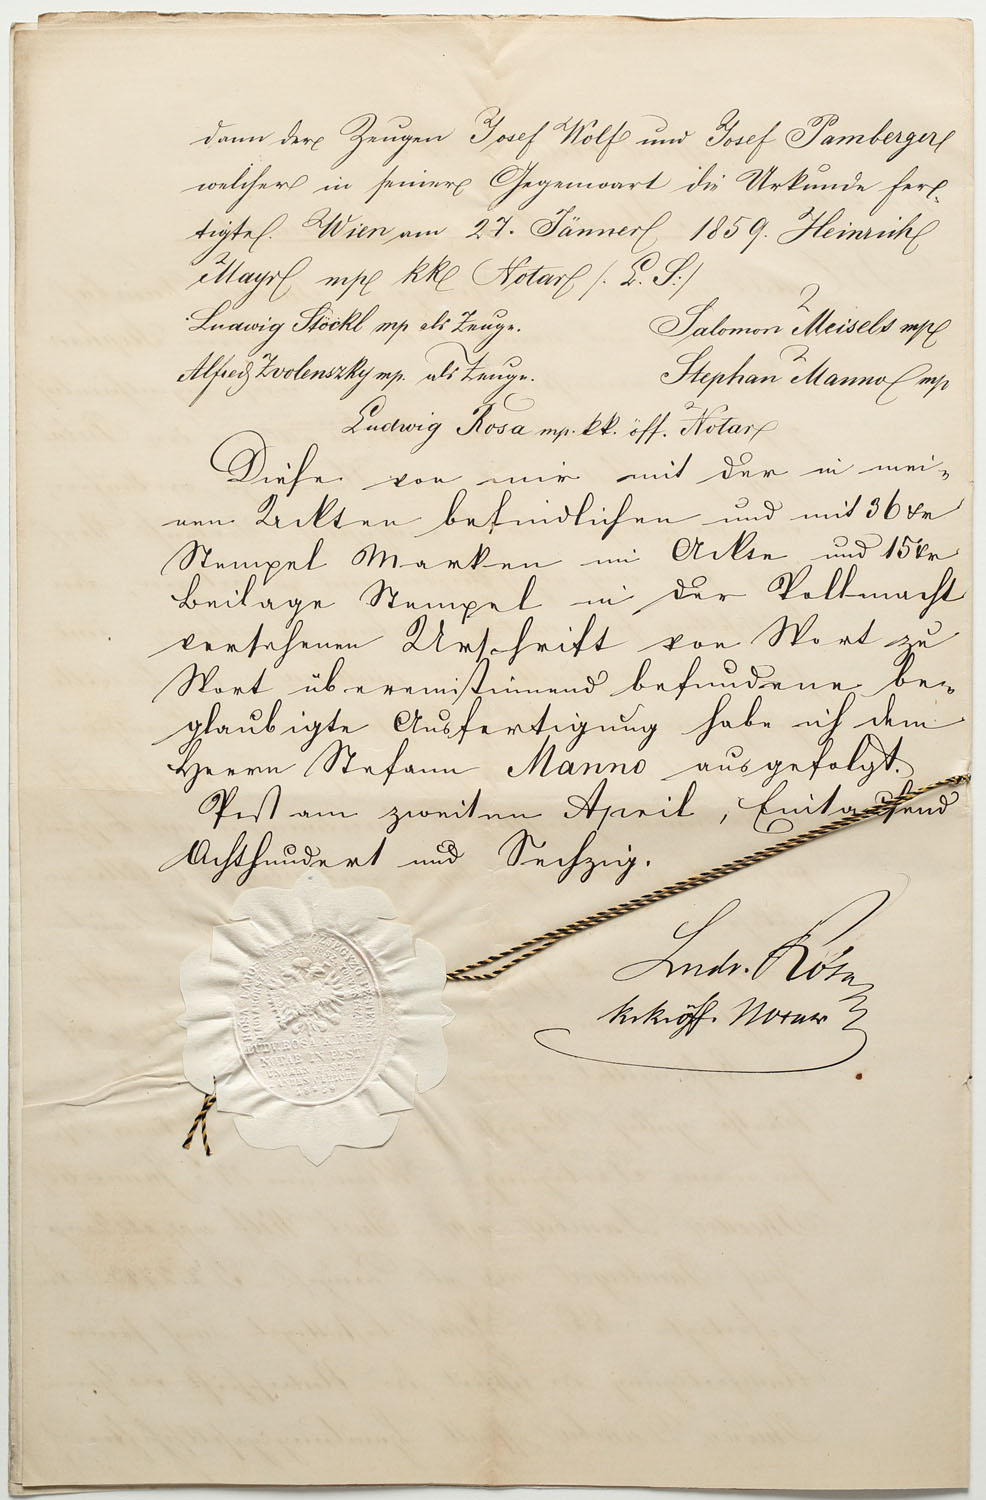 dann der Zeugen Josef Wolf und Josef Pamberger
welcher in seiner Gegenwart die Urkunde fer-
tigte. Wien am 27. Jänner 1859. Heinrich
Mayr mp kk Notar /: L. S:/
Ludwig Stöckl mp als Zeuge. Salomon Meisels mp
Alfred Zvolenszky mp. als Zeuge. Stephan Manno mp
Ludwig Rosa mp. kk. öff. Notar
Diese von mir mit der in mei-
nen Ackten befindlichen und mit 36 xr
Stempel Marken im Ackte und 15 xr
Beilage Stempel in der Vollmacht
versehenen Urschrift von Wort zu
Wort übereinstimmend befundene be-
glaubigte Ausfertigung habe ich dem
Herrn Stefann Manno ausgefolgt.
Pest am zweiten April, Eintausend
Achthundert und Sechzig.
Ludv. Rósa
k.k. öff. Notar
LUDW. ROSA K. K. ÖFF.
NOTAR IN PEST